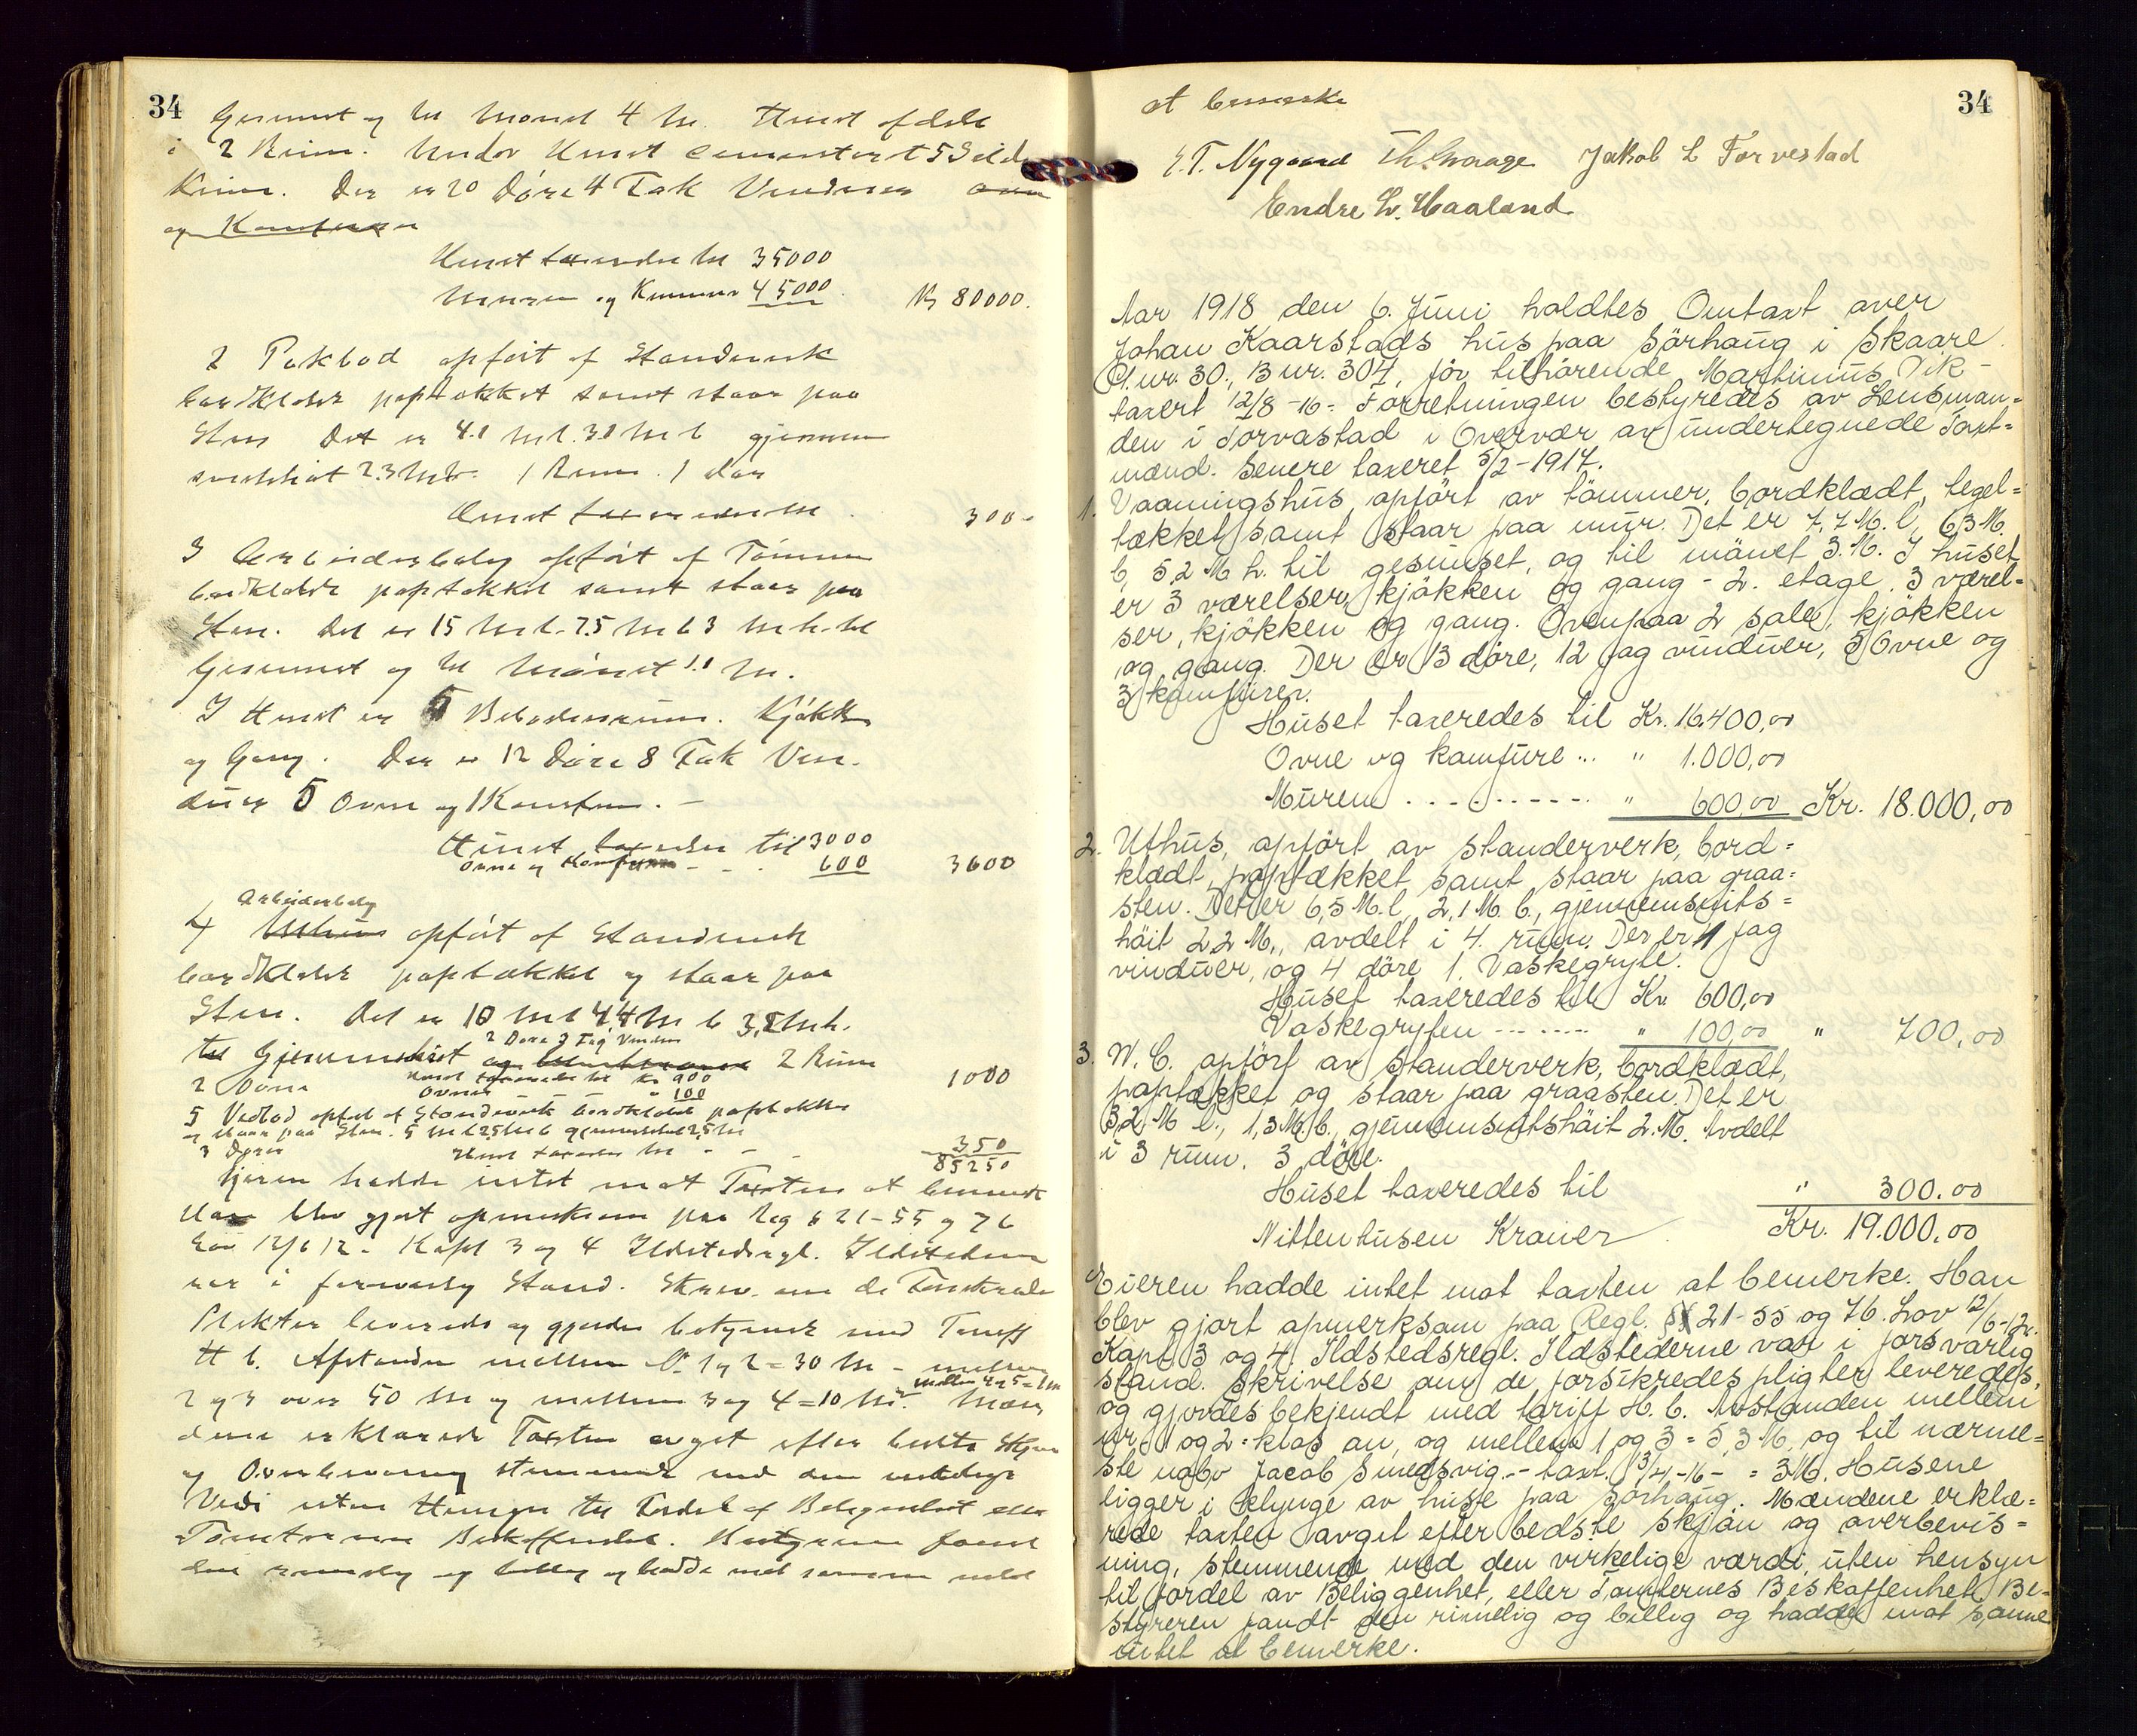 34
Gesimset og til Mønet 4 M. Huset afdelt
i 2 Rum. Under Huset cementert 5 Silde
Kum. Der er 20 Døre 4 Fak Vinduer
og
Huset taxeredes til 35000
Muren og Kummer 45000 Kr 80000.
2 Pakbod opført af Standerverk
bordklædt paptækket samt staar paa
Sten Det er 4.1 M l. 3.1 M b gjennem
snitshøit 2.3 M 1 Rum. 1 Dør
Huset taxeredes til 300-
3 Arbeiderbolig opført af Tømmer
bordklædt paptækket samt staar paa
Sten. Det er 15 M l. 7.5 M b 3 M h. til
Gesimset og til Mønet 1.1 M.
I Huset er 5 Beboelsesrum. Kjøkken
og Gang. Der er 12 Døre 8 Fak Vin-
duer 5 Ovne og 1 Komfur. -
Huset taxeredes til 3000
Ovne og Komfuren - - - 600 3600
Arbeiderbolig
4 Uthus opført af Standerverk
bordklædt paptækket og staar paa
Sten. Det er 10 M l 4,4 M b 3,2 M h.
2 Døre 3 Fag Vinduer
til Gjennemsnit og 2 Rum
2 Ovne Huset taxeredes til Kr 900 1000
Ovne - - " 100
5 Vedbod opført af Standerverk bordklædt paptækket
og staar paa Sten. 5 M l 2,5 M b gjennemsnit 2,5 M
3 Døre Huset taxeredes til - - - 350
85250
Eieren hadde intet mot Taxten at bemerke
Han blev gjort opmerksom paa Reg § 21-55 og 76
Lov 12/6 12 - Kapt 3 og 4 Ildstedsregl. Ildstederne
var i forsvarlig Stand. Skriv. om de Forsikredes
Plikter leveredes og gjordes bekjendt med Tariff
H b. Afstanden mellem No 1 og 2 = 30 M - mellem
mellem 4 og 5 = 1 m
2 og 3 over 50 M og mellem 3 og 4 = 10 M. Mæn
dene erklærede Taxten avget efter bedste Skjøn
og Overbevisning stemmende med den virkelige
Værdi uten Hensyn til Fordel af Beliggenhet eller
Tomternes Beskaffenhet. Bestyreren fandt
den rimelig og billig og hadde mot samme intet
34
at bemerke
S. T. Nygaard Th. Waage Jakob L Torvestad
Endre Lr. Haaland
Aar 1918 den 6. Juni holdtes Omtaxt over
Johan Kaarstads hus paa Sörhaug i Skaare.
G.nr. 30., B nr. 307, för tilhörende Martinius Vik -
taxert 12/8 -16 - Forretningen bestyredes av Lensman-
den i Torvastad i Overvær av undertegnede Taxt-
mænd. Senere taxeret 5/2 - 1917.
1. Vaaningshus opfört av tömmer, bordklædt, tegel-
tækket samt staar paa mur. Det er 7,7 M. l, 6,3 M.
b, 5,2 M h. til gesimset, og til mönet 3. M. I huset
er 3 værelser, kjökken og gang - 2. etage, 3 værel-
ser, kjökken og gang. Ovenpaa 2 sale, kjökken
og gang. Der er 13 döre, 12 fag vinduer, 5 Ovne og
3 komfurer.
Huset taxeredes til Kr. 16.400,00
Ovne og komfure ... " 1.000,00
Muren .......... " 600,00 Kr. 18.000,00
2. Uthus, opfört av standerverk, bord-
klædt, paptækket samt staar paa graa-
sten. Det er 6,5 M. l, 2,1 M. b., gjennemsnits-
höit 2,2 M., avdelt i 4. rum. Der er 4 fag
vinduer, og 4 döre 1. Vaskegryte.
Huset taxeredes til Kr 600,00
Vaskegryten ------- " 100,00 " 700,00
3. W. C. opfört av standerverk, bordklædt,
paptækket og staar paa graasten. Det er
3,2 M l., 1,3 M b., gjennemsnitshöit 2. M. Avdelt
i 3 rum. 3 döre.
Huset taxeredes til " 300.00
Nittentusen Kroner Kr. 19.000,00
Eieren hadde intet mot taxten at bemerke. Han
blev gjort opmerksom paa Regl. §§ 21-55 og 76. Lov 12/6-12.
Kapt. 3 og 4. Ildstedsregl. Ildstederne var i forsvarlig
stand. Skrivelse om de forsikredes pligter leveredes,
og gjordes bekjendt med tariff H. b. Avstanden mellem
nr. 1 og 2 = klos an, og mellem 1 og 3 = 5,3 M, og til nærme-
ste nabo Jacob Smedsvig - taxt. 13/4-16 - = 3 M. Husene
ligger i klynge av huse paa Sörhaug. Mændene erklæ-
rede taxten avgit efter bedste skjön og overbevis-
ning, stemmende med den virkelige værdi, uten hensyn
til fordel av Beliggenhet, eller Tomternes Beskaffenhet. Be-
styreren fandt den rimelig og billig og hadde mot samme
intet at bemerke.